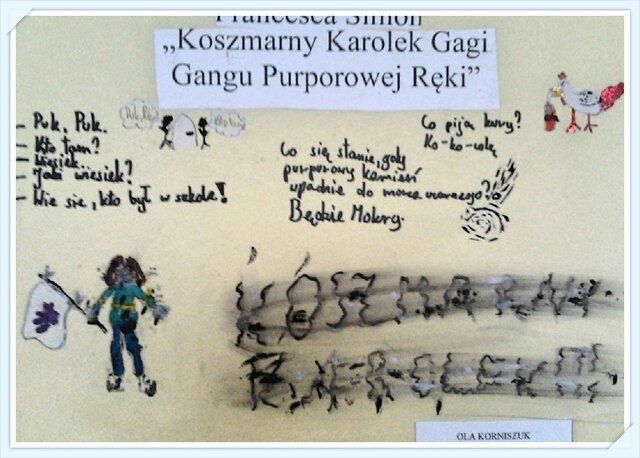 Francesca Simon
„Koszmarny Karolek Gagi
Gangu Purporowej Ręki”
- Puk, Puk.
- Kto tam?
- Wiesiek..
- Jaki wiesiek?
- Wie sie, kto był w szkole!
Co piją kury?
Ko-ko-colę
Co się stanie, gdy
purporowy kamień
upadnie do morza czarnego?
Będzie Mokry.
OLA KORNISZUK